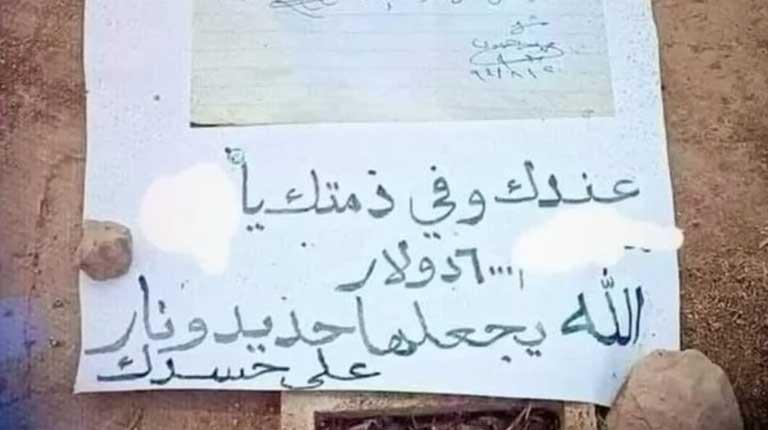 عندك وفي ذمتك يا
٦٠٠٠ دولار
الله يجعلها حديد ونار
على جسدك